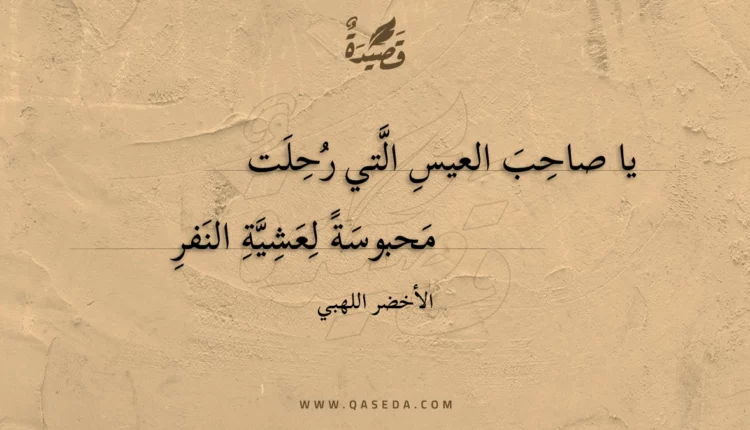 قَصِيْدَةٌ
يا صاحِبَ العيسِ الَّتي رُحِلَت
مَحبوسَةً لِعَشِيَّةِ النَفرِ
الأخضر اللهبي
WWW.QASEDA.COM